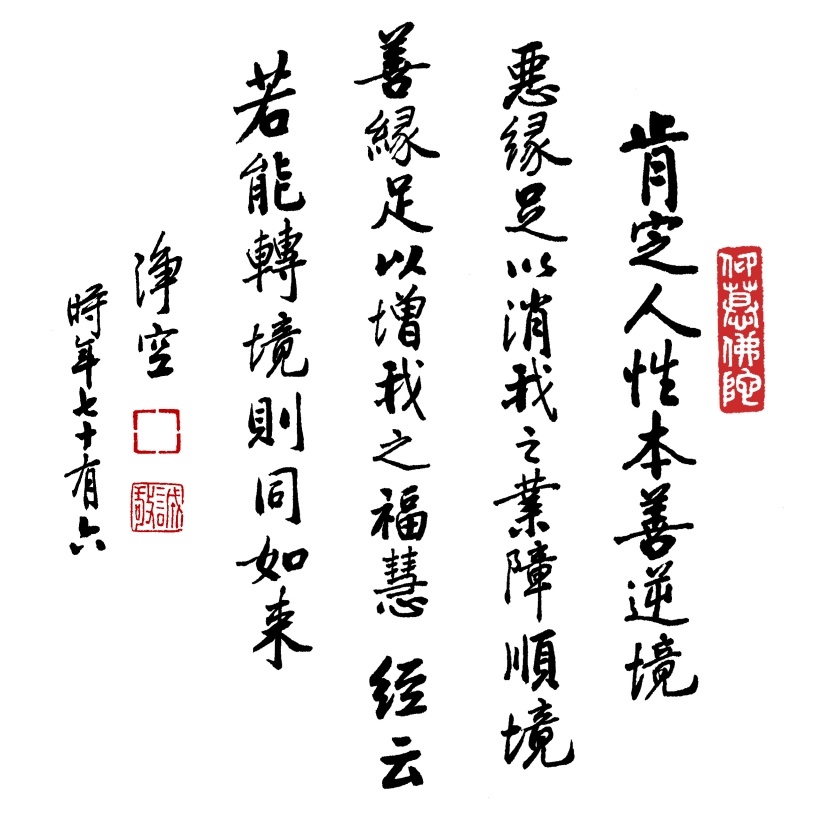 仰慕佛陀
肯定人性本善逆境
惡緣足以消我之業障順境
善緣足以增我之福慧 經云
若能轉境則同如来
淨空
誠敬
時年七十有六